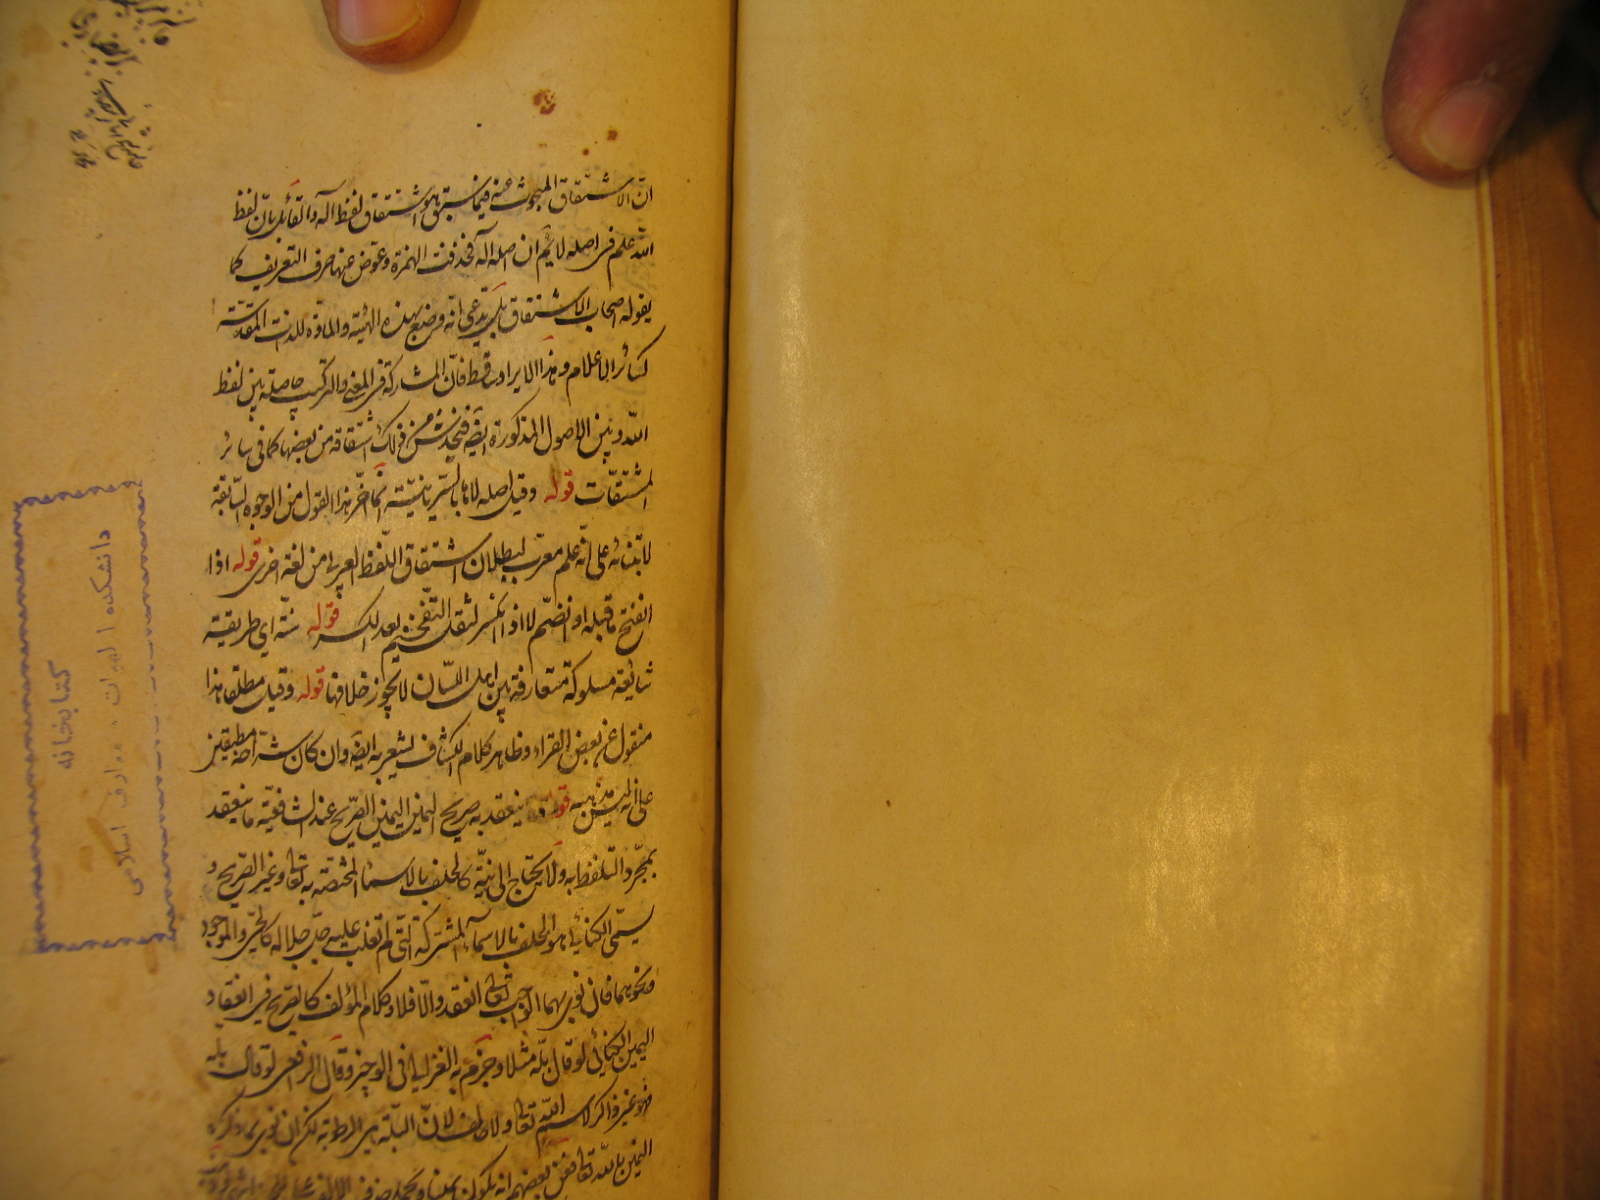 انّ الاشتقاق المبحوث عنه فيما سبق هو اشتقاق لفظ اله والقائل بانّ لفظ
اللّه علم فى اصله لا يسلّم ان اصله اله فحذفت الهمزة وعوض عنها حرف التعريف كما
يقوله اصحاب الاشتقاق بل يدّعى انّه وضع بهذه الهيئة والمادة للذات المقدسة
كسائر الاعلام وهذا الايراد ساقط فانّ المشاركة فى المعنى والتركيب حاصلة بين لفظ
اللّه وبين الاصول المذكورة ايضا من ذلك اشتقاقه من بعضها كما فى سائر
المشتقّات قوله وقيل اصله لاها بالسّريانيّة انّما اخّر هذا القول من الوجوه السّابقة
لابتنائه على انّه علم معرّب لبطلان اشتقاق اللّفظ العربى من لغة اخرى قوله اذا
انفتح ما قبله او انضمّ لا اذا انكسر لثقل التّفخيم بعد الكسر قوله سنّة اى طريقة
شائعة مسلوكة متعارفة بين اهل اللّسان لا يجوز خلافها قوله وقيل مطلقا هذا
منقول عن بعض القراء وظاهر كلام الكشاف يشعر به ايضا وان كان
على انه ليس مذهبه قوله ينعقد به صريح اليمين اليمين الصّريح عند الشافعيّة ما ينعقد
بمجرّد التلفّظ به ولا يحتاج الى نيّة كالحلف بالاسماء المختصة به تعالى وغير الصّريح و
يسمّى الكنائى هو الحلف بالاسماء المشتركة الّتى لم تغلب عليه جلّ جلاله كالحىّ والموجود
ونحوهما فان نوى بهما الواجب تعالى انعقد والّا فلا وكلام المؤلف كالصّريح فى انعقاد
اليمين الكنائى لو قال بلّه مثلا وجزم به الغزالى فى الوجيز وقال الرافعى لو قال بلّه
فهو غير ذاكر لاسم اللّه تعالى ولا حالف لانّ البلّة هى الرطوبة لكن ان نوى بما ذكره
اليمين باللّه تعالى فعن بعضهم انه يكون يمينا
كتابخانه
دانشكده الهيات و معارف اسلامى